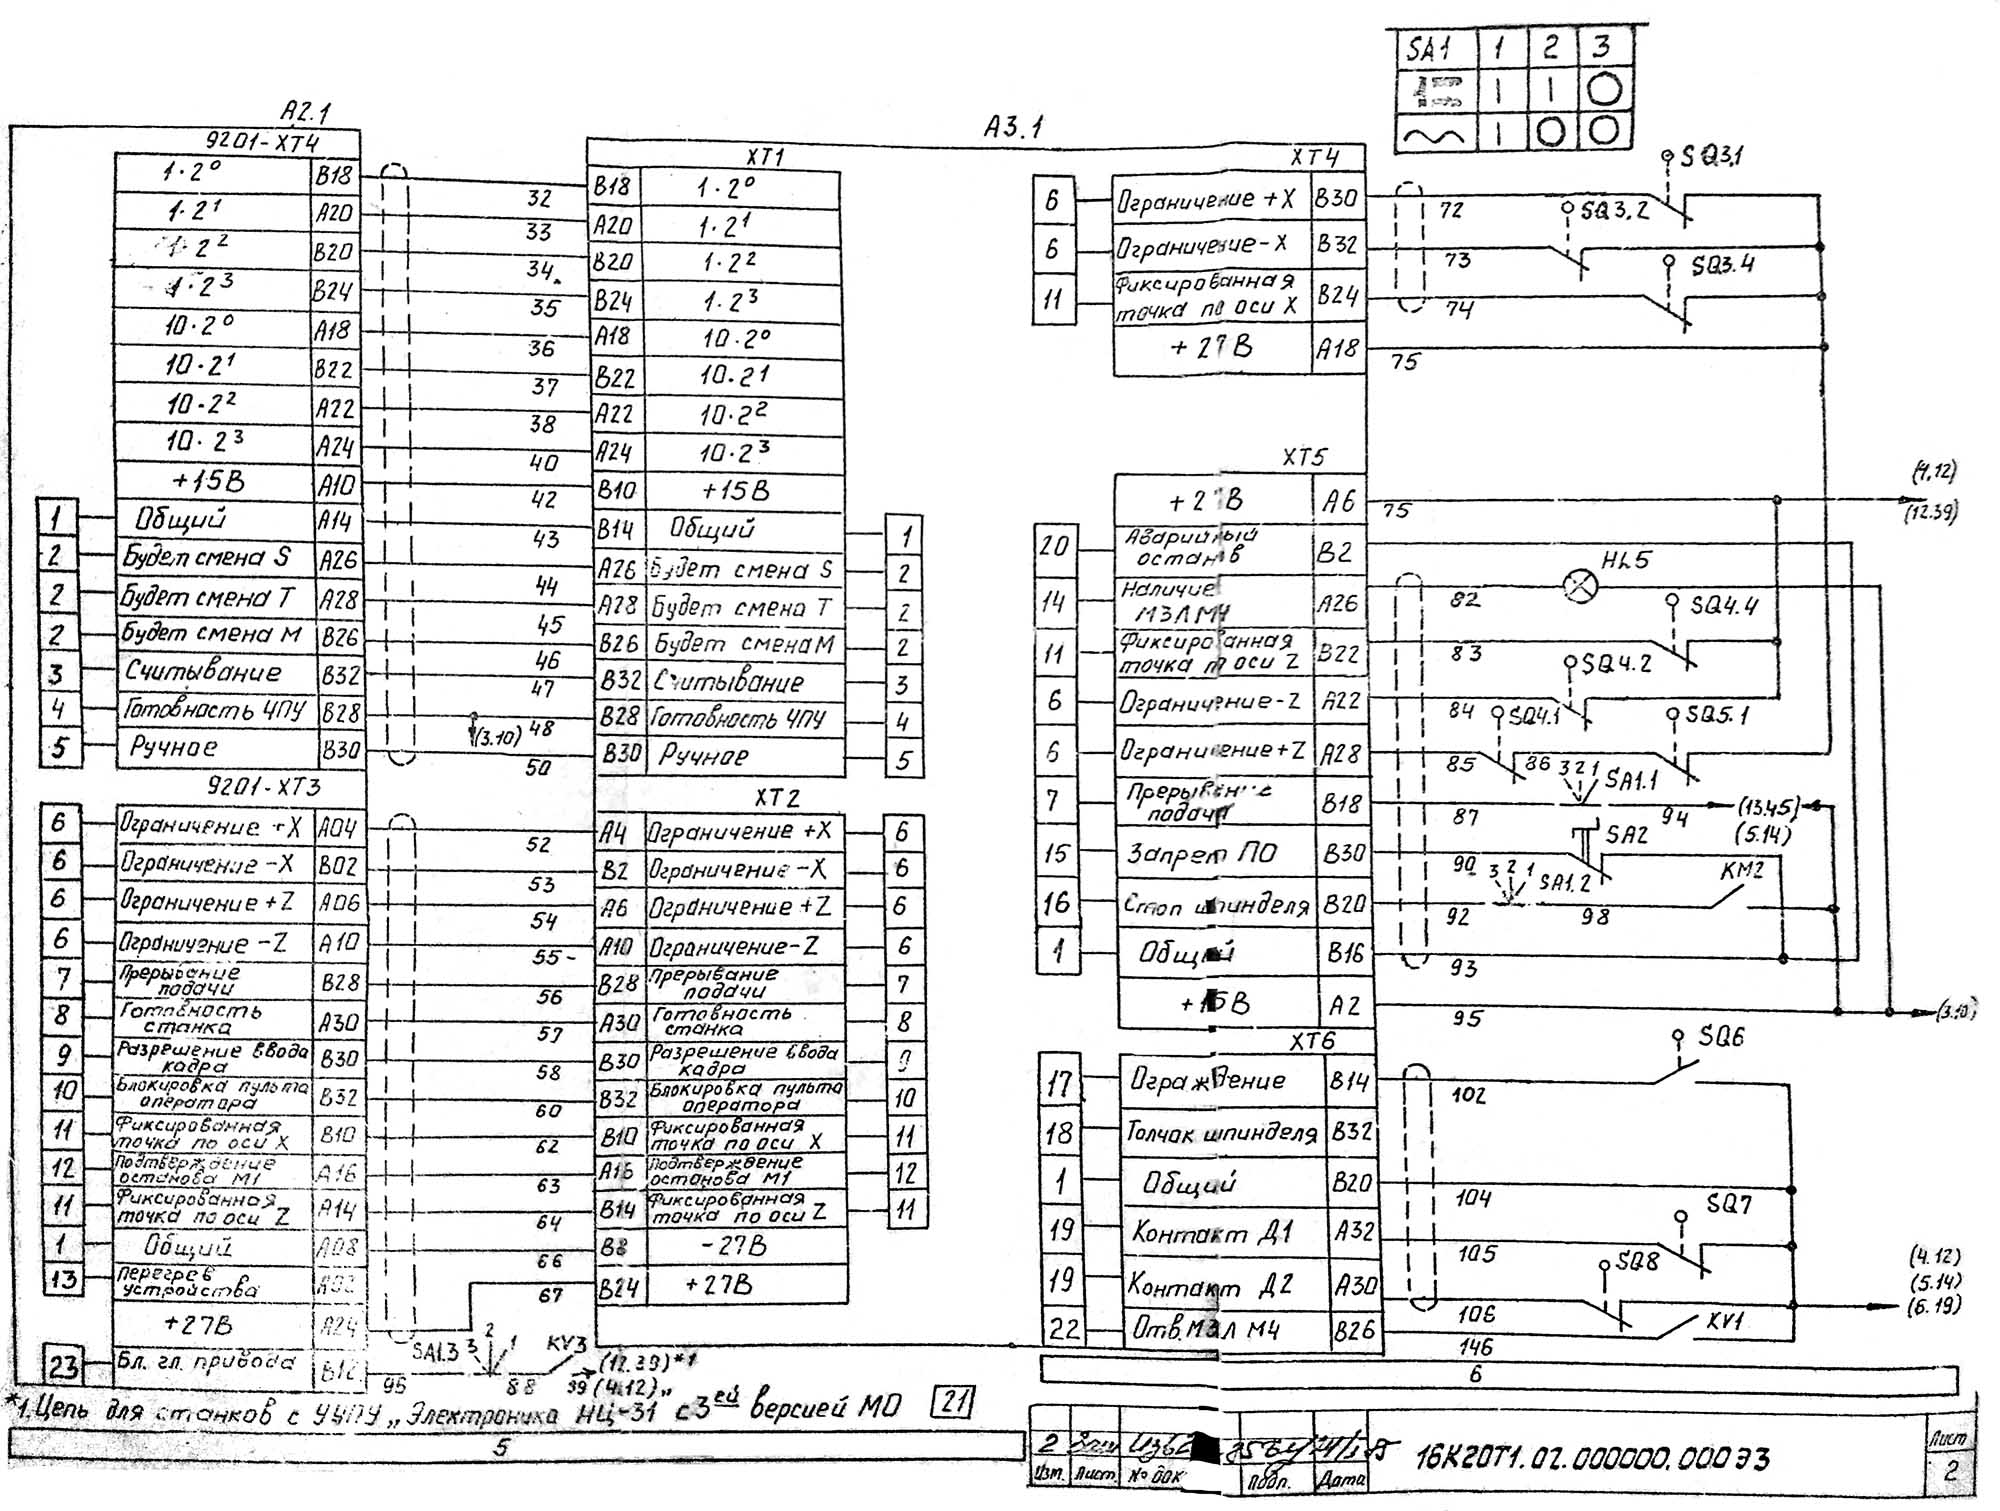 SA1 1 2 3
A2.1
9201-XT4
1·2⁰ B18
1·2¹ A20
1·2² B20
1·2³ B24
10·2⁰ A18
10·2¹ B22
10·2² A22
10·2³ A24
+15В A10
1 Общий A14
2 Будет смена S A26
2 Будет смена T A28
2 Будет смена M B26
3 Считывание B32
4 Готовность ЧПУ B28
5 Ручное B30
9201-XT3
6 Ограничение +X A04
6 Ограничение -X B02
6 Ограничение +Z A06
6 Ограничение -Z A10
7 Прерывание подачи B28
8 Готовность станка A30
9 Разрешение ввода кадра B30
10 Блокировка пульта оператора B32
11 Фиксированная точка по оси X B10
12 Подтверждение останова M1 A16
11 Фиксированная точка по оси Z A14
1 Общий A08
13 Перегрев устройства A02
+27В A24
23 Бл. гл. привода B12
32
33
34
35
36
37
38
40
42
43
44
45
46
47
(3.10) 48
50
52
53
54
55
56
57
58
60
62
63
64
66
67
SA1.3 3 2 1 KV3
96 88 99 (12.39)*1
(4.12)„
A3.1
XT1
B18 1·2⁰
A20 1·2¹
B20 1·2²
B24 1·2³
A18 10·2⁰
B22 10·2¹
A22 10·2²
A24 10·2³
B10 +15В
B14 Общий 1
A26 Будет смена S 2
A28 Будет смена T 2
B26 Будет смена M 2
B32 Считывание 3
B28 Готовность ЧПУ 4
B30 Ручное 5
XT2
A4 Ограничение +X 6
B2 Ограничение -X 6
A6 Ограничение +Z 6
A10 Ограничение -Z 6
B28 Прерывание подачи 7
A30 Готовность станка 8
B30 Разрешение ввода кадра 9
B32 Блокировка пульта оператора 10
B10 Фиксированная точка по оси X 11
A16 Подтверждение останова M1 12
B14 Фиксированная точка по оси Z 11
B8 -27В
B24 +27В
XT4
6 Ограничение +X B30 72 SQ3.1
6 Ограничение -X B32 73 SQ3.2
11 Фиксированная точка по оси X B24 74 SQ3.4
+27В A18 75
XT5
+27В A6 75 (4.12)
(12.39)
20 Аварийный останов B2
14 Наличие МЗЛМ4 A26 82 HL5
11 Фиксированная точка по оси Z B22 83 SQ4.4
6 Ограничение -Z A22 84 SQ4.2
6 Ограничение +Z A28 85 SQ4.1 86 SQ5.1
7 Прерывание подачи B18 87 3 2 1 SA1.1 94 (13.45)
(5.14)
15 Запрет ПО B30 90 SA2
16 Стоп шпинделя B20 92 3 2 1 SA1.2 98 KM2
1 Общий B16 93
+15В A2 95 (3.10)
XT6
17 Ограждение B14 102 SQ6
18 Толчок шпинделя B32
1 Общий B20 104
19 Контакт Д1 A32 105 SQ7
19 Контакт Д2 A30 106 SQ8
22 Отв. МЗЛ М4 B26 146 KV1
(4.12)
(5.14)
(6.19)
6
*1. Цепь для станков с УЧПУ „Электроника НЦ-31 с 3ей версией МО 21
5
2
Изм. Лист. № док Подп. Дата
16К20Т1.02.000000.000Э3
Лист
2